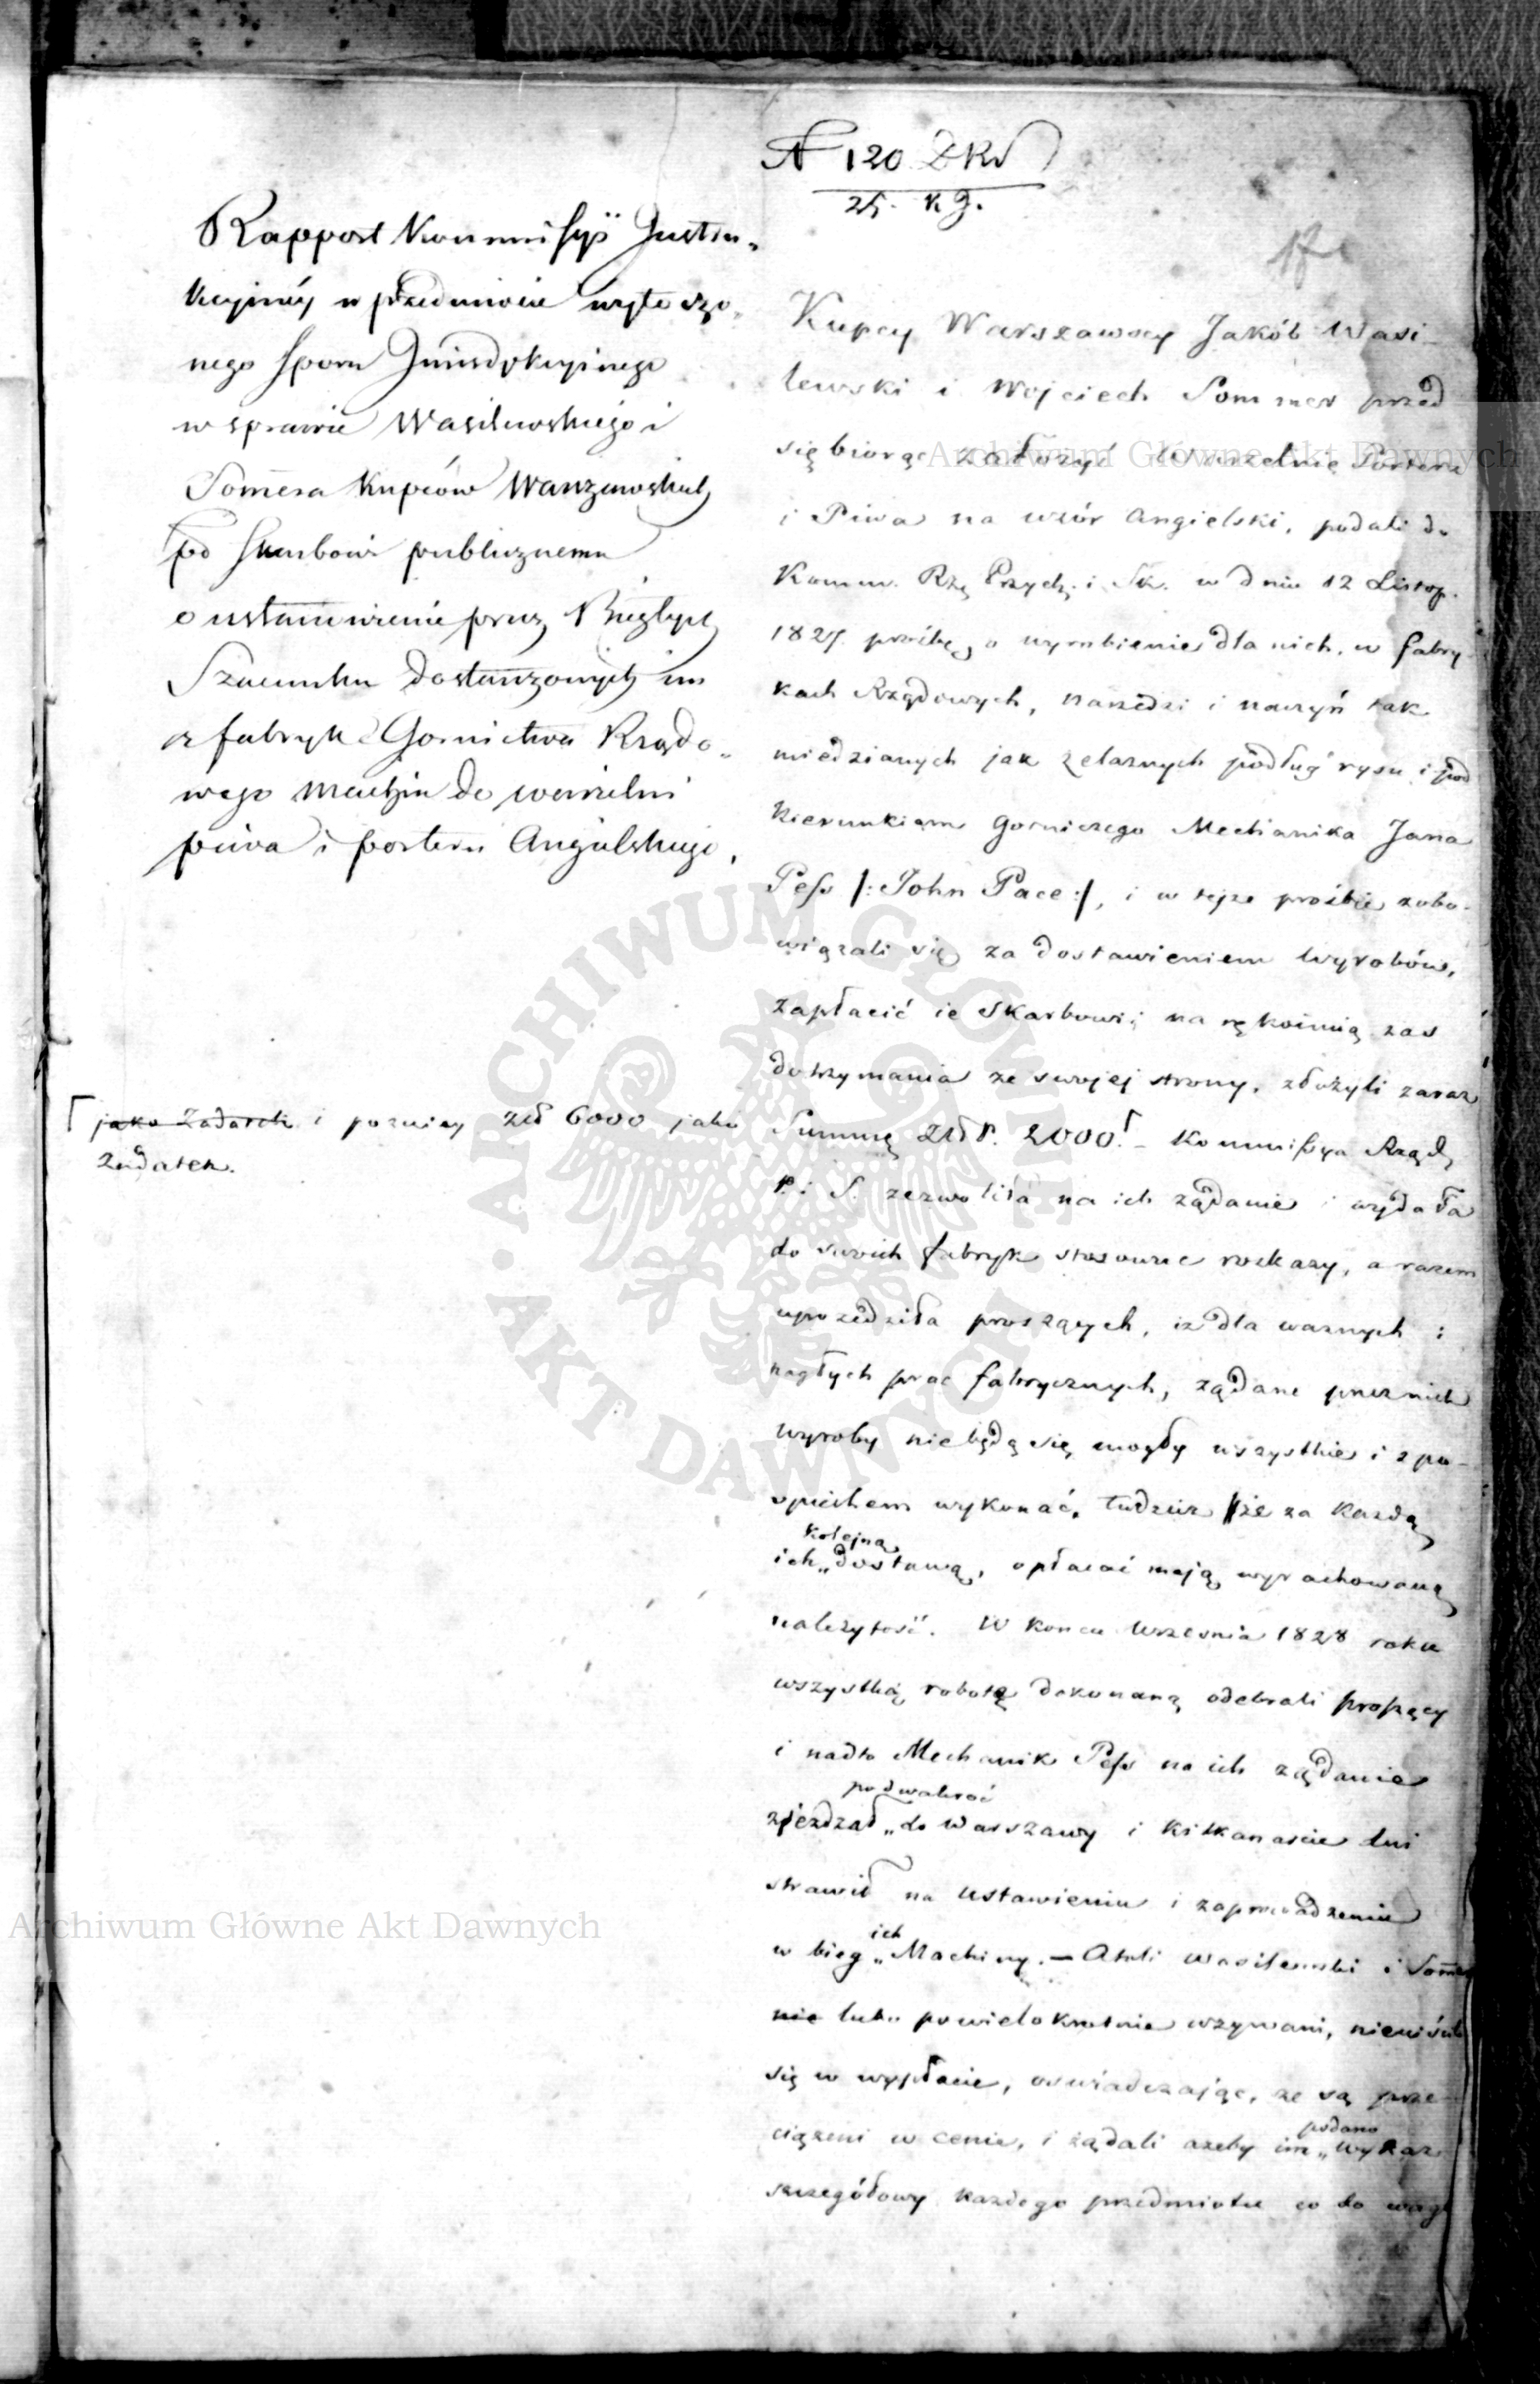 N 120 DKS
25. K G.
17
Rappost Kommissyi Justru„
kcyinéy w przedmiocie wytoczo„
nego sporu Jurisdykcyinego
w sprawie Wasilewskiego i
Somera Kupców Warszawskich
po Skarbowi publicznemu
o ustanowienie przez Biegłych
Szacunku dostarczonych im
z fabryk Gornictwa Rządo„
wego Machin do warzelni
piwa i porteru Angielskiego.
Kupcy Warszawscy Jakób Wasi-
lewski i Wojciech Sommer przed
się biorąc założyć Warzelnię Porteru
i Piwa na wzór angielski, podali do
Komm. Rzą Przych. i Sk. w dniu 12 Listop.
1827. prośbę, o wyrobienie dla nich, w fabry-
kach Rządowych, narzędzi i naczyń tak
miedzianych jak żelaznych podług rysu i pod
kierunkiem Gorniczego Mechanika Jana
Pess /: John Pace :/, i w tejże prośbie zobo-
wiązali się za dostawieniem wyrobów,
zapłacić ie Skarbowi; na rękoimią zas
dotrzymania ze swojej strony, złożyli zaraz
Summę Złp. 2000.⌈ – Kommissya Rząd.
P. i S. zezwoliła na ich żądanie i wydała
do swoich fabryk stosowne rozkazy, a razem
uprzedziła proszących, iż dla ważnych i
nagłych prac fabrycznych, żądane przez nich
wyroby nie będą się mogły wszystkie i z po-
spiechem wykonać, tudzież że za każdą
kolejną
ich „ dostawą, opłacać mają wyrachowaną
należytość. W koncu Wrzesnia 1828 roku
wszystką robotę dokonaną odebrali proszący
i nadto Mechanik Pess na ich żądanie
podwakroć
zjeżdzał „ do Warszawy i kilkanascie dni
strawił na ustawieniu i zaprowadzeniu
ich
w bieg „ Machiny. – Atoli Wasilewski i Somer
nie lubo powielokrotnie wzywani, nieuiścili
się w wypłacie, oswiadczając, że są prze-
podano
ciążeni w cenie, i żądali ażeby im „ wykaz
szczegółowy każdego przedmiotu co do wagi
⌈ jako Zadatek i pozniey zł 6000 jako
Zadatek.
Archiwum Główne Akt Dawnych
Archiwum Główne Akt Dawnych
ARCHIWUM GŁÓWNE · AKT DAWNYCH ·